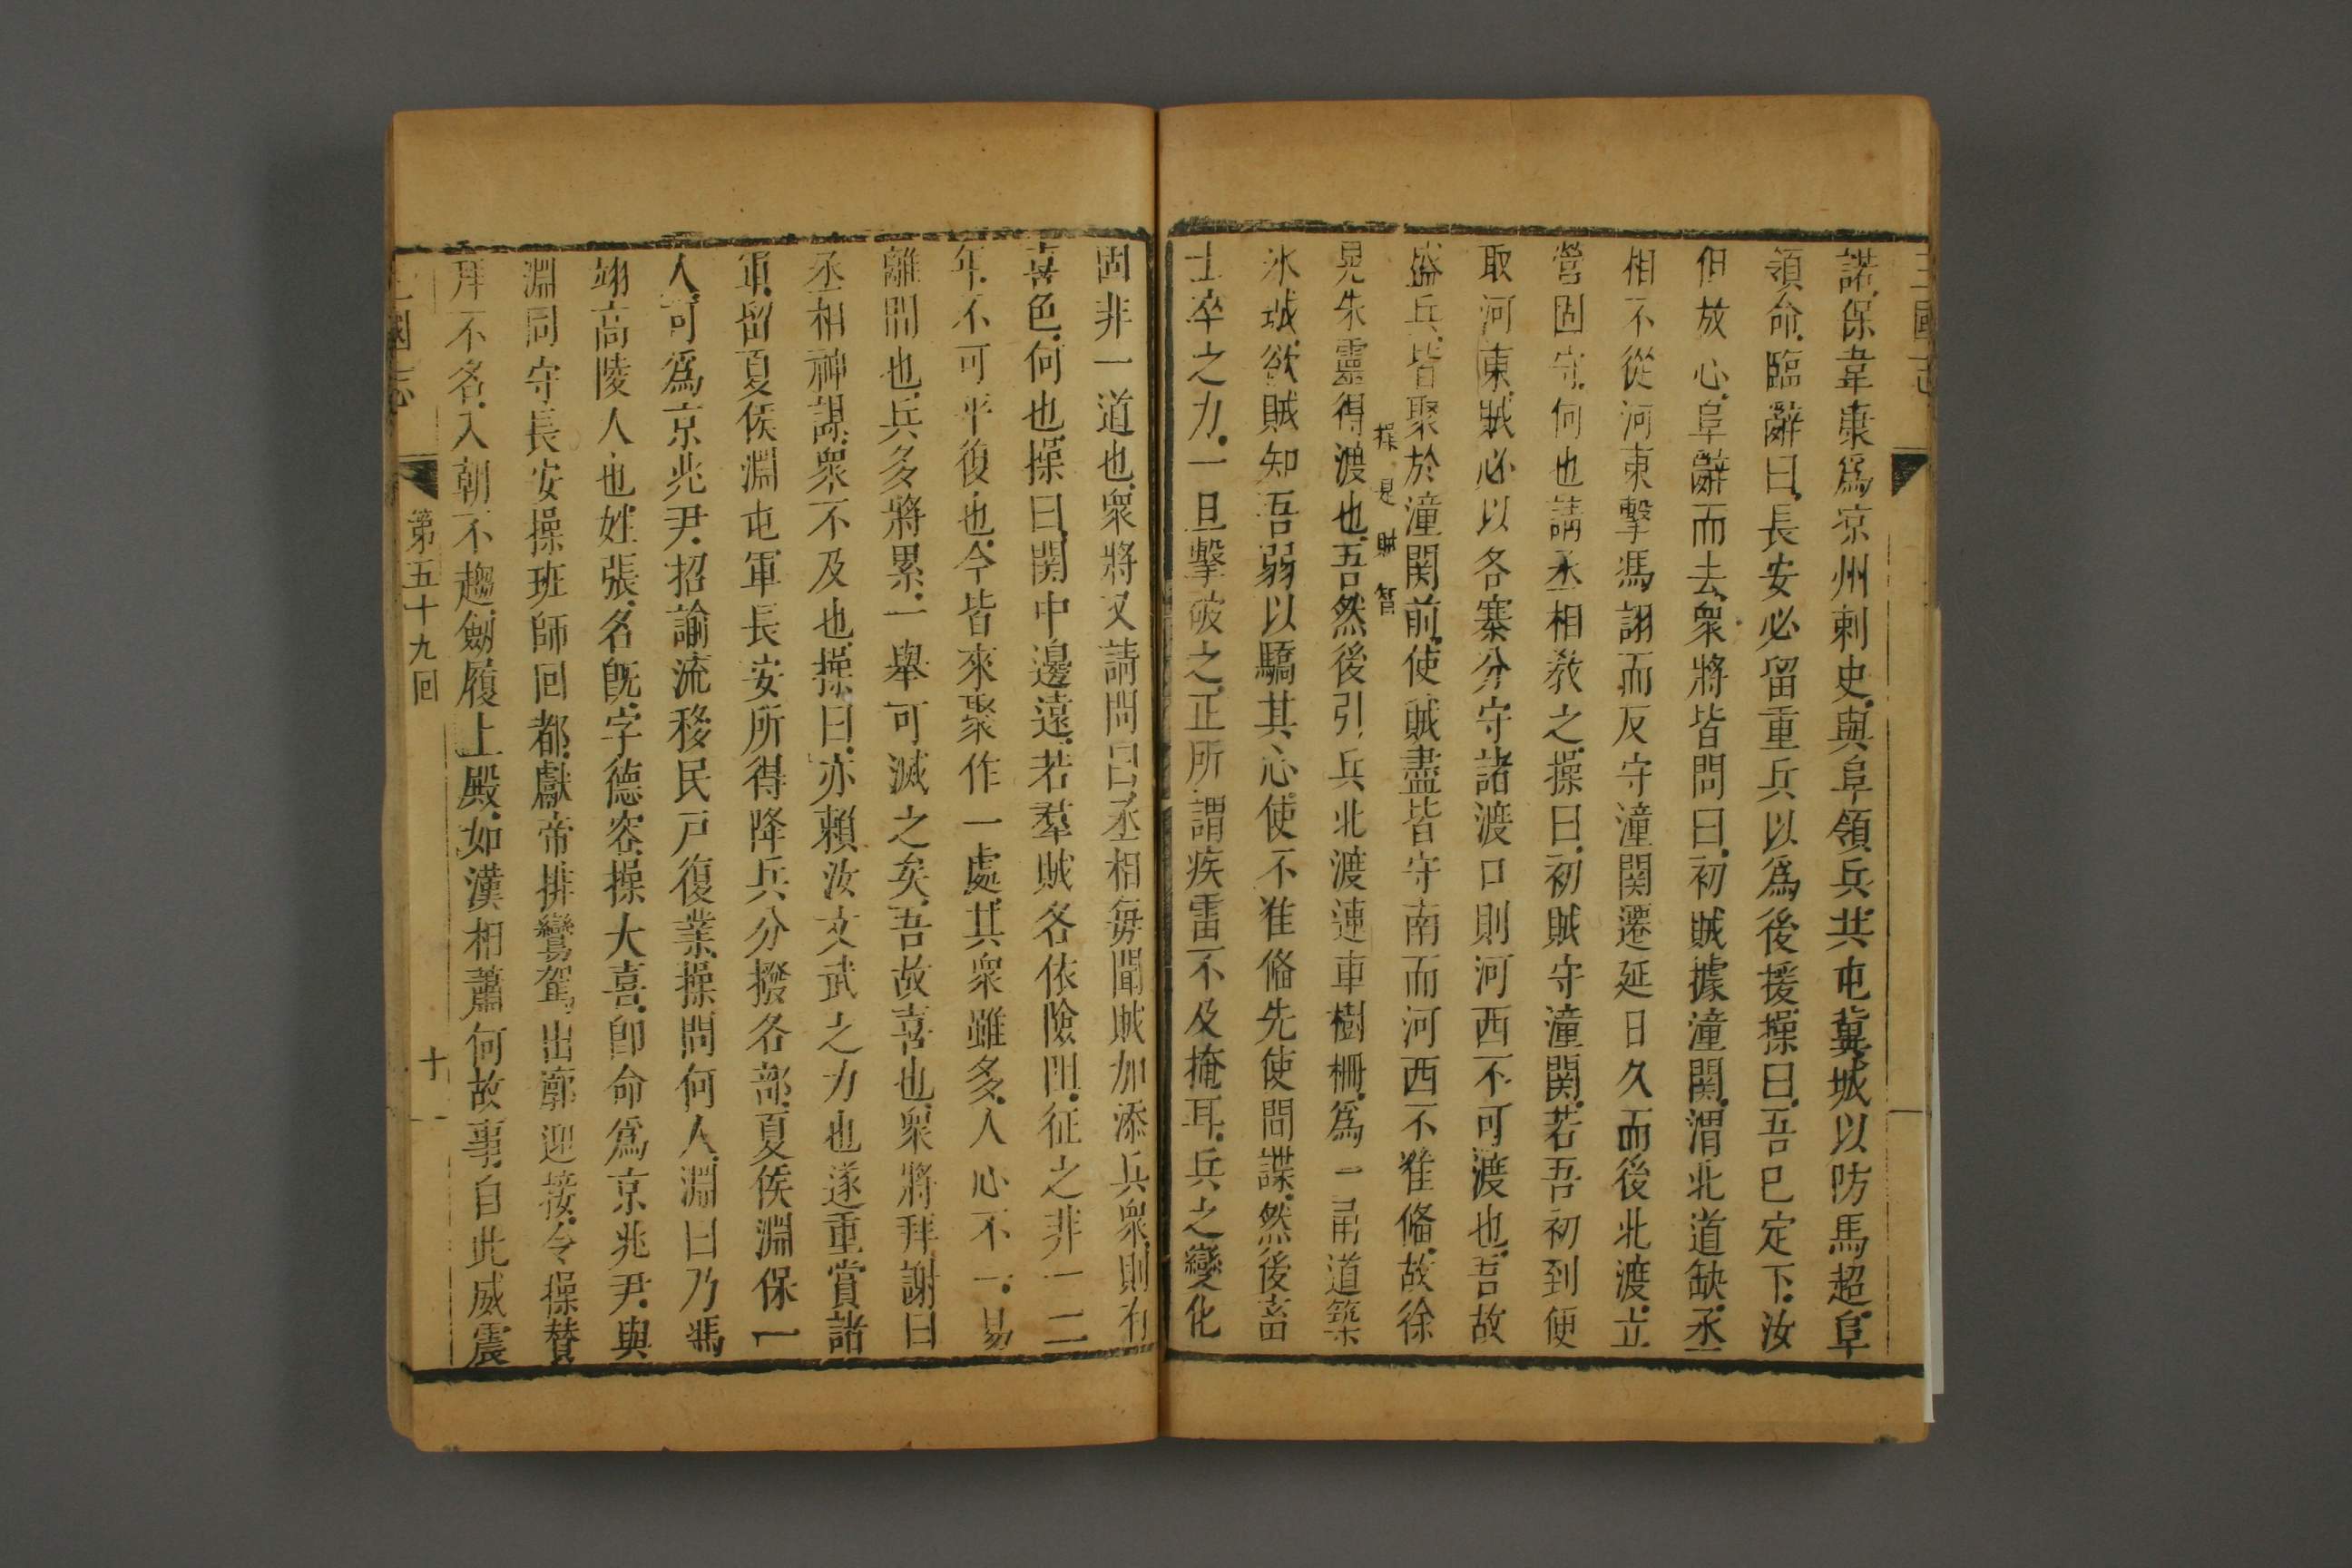 三國志
諾保韋康爲凉州刺史與阜領兵共屯冀城以防馬超阜
領命臨辭曰長安必留重兵以爲後援操曰吾已定下汝
但放心阜辭而去衆將皆問曰初賊據潼關渭北道缺丞
相不從河東擊馮翊而反守潼關遷延日久而後北渡立
營固守何也請丞相教之操曰初賊守潼關若吾初到便
取河東賊必以各寨分守諸渡口則河西不可渡也吾故
盛兵皆聚於潼關前使賊盡皆守南而河西不准俻故徐
操是
智
晃朱靈得渡也吾然後引兵北渡連車樹柵爲一甬道築
氷城欲賊知吾弱以驕其心使不准俻先使間諜然後畜
士卒之力一旦擊破之正所謂疾雷不及掩耳兵之變化
固非一道也衆將又請問曰丞相每聞賊加添兵衆則有
喜色何也操曰関中邊遠若羣賊各依險阻征之非一二
年不可平復也今皆來聚作一處其衆雖多人心不一易
離間也兵多將累一舉可滅之矣吾故喜也衆將拜謝曰
丞相神謀衆不及也操曰亦賴汝文武之力也遂重賞諸
軍留夏侯淵屯軍長安所得降兵分撥各部夏侯淵保一
人可爲京兆尹招諭流移民戸復業操問何人淵曰乃馮
翊高陵人也姓張名旣字德容操大喜卽命爲京兆尹與
淵同守長安操班師回都獻帝排鸞駕出廓迎接令操贊
拜不名入朝不趨劒履上殿如漢相蕭何故事自此威震
三國志
第五十九回
十一